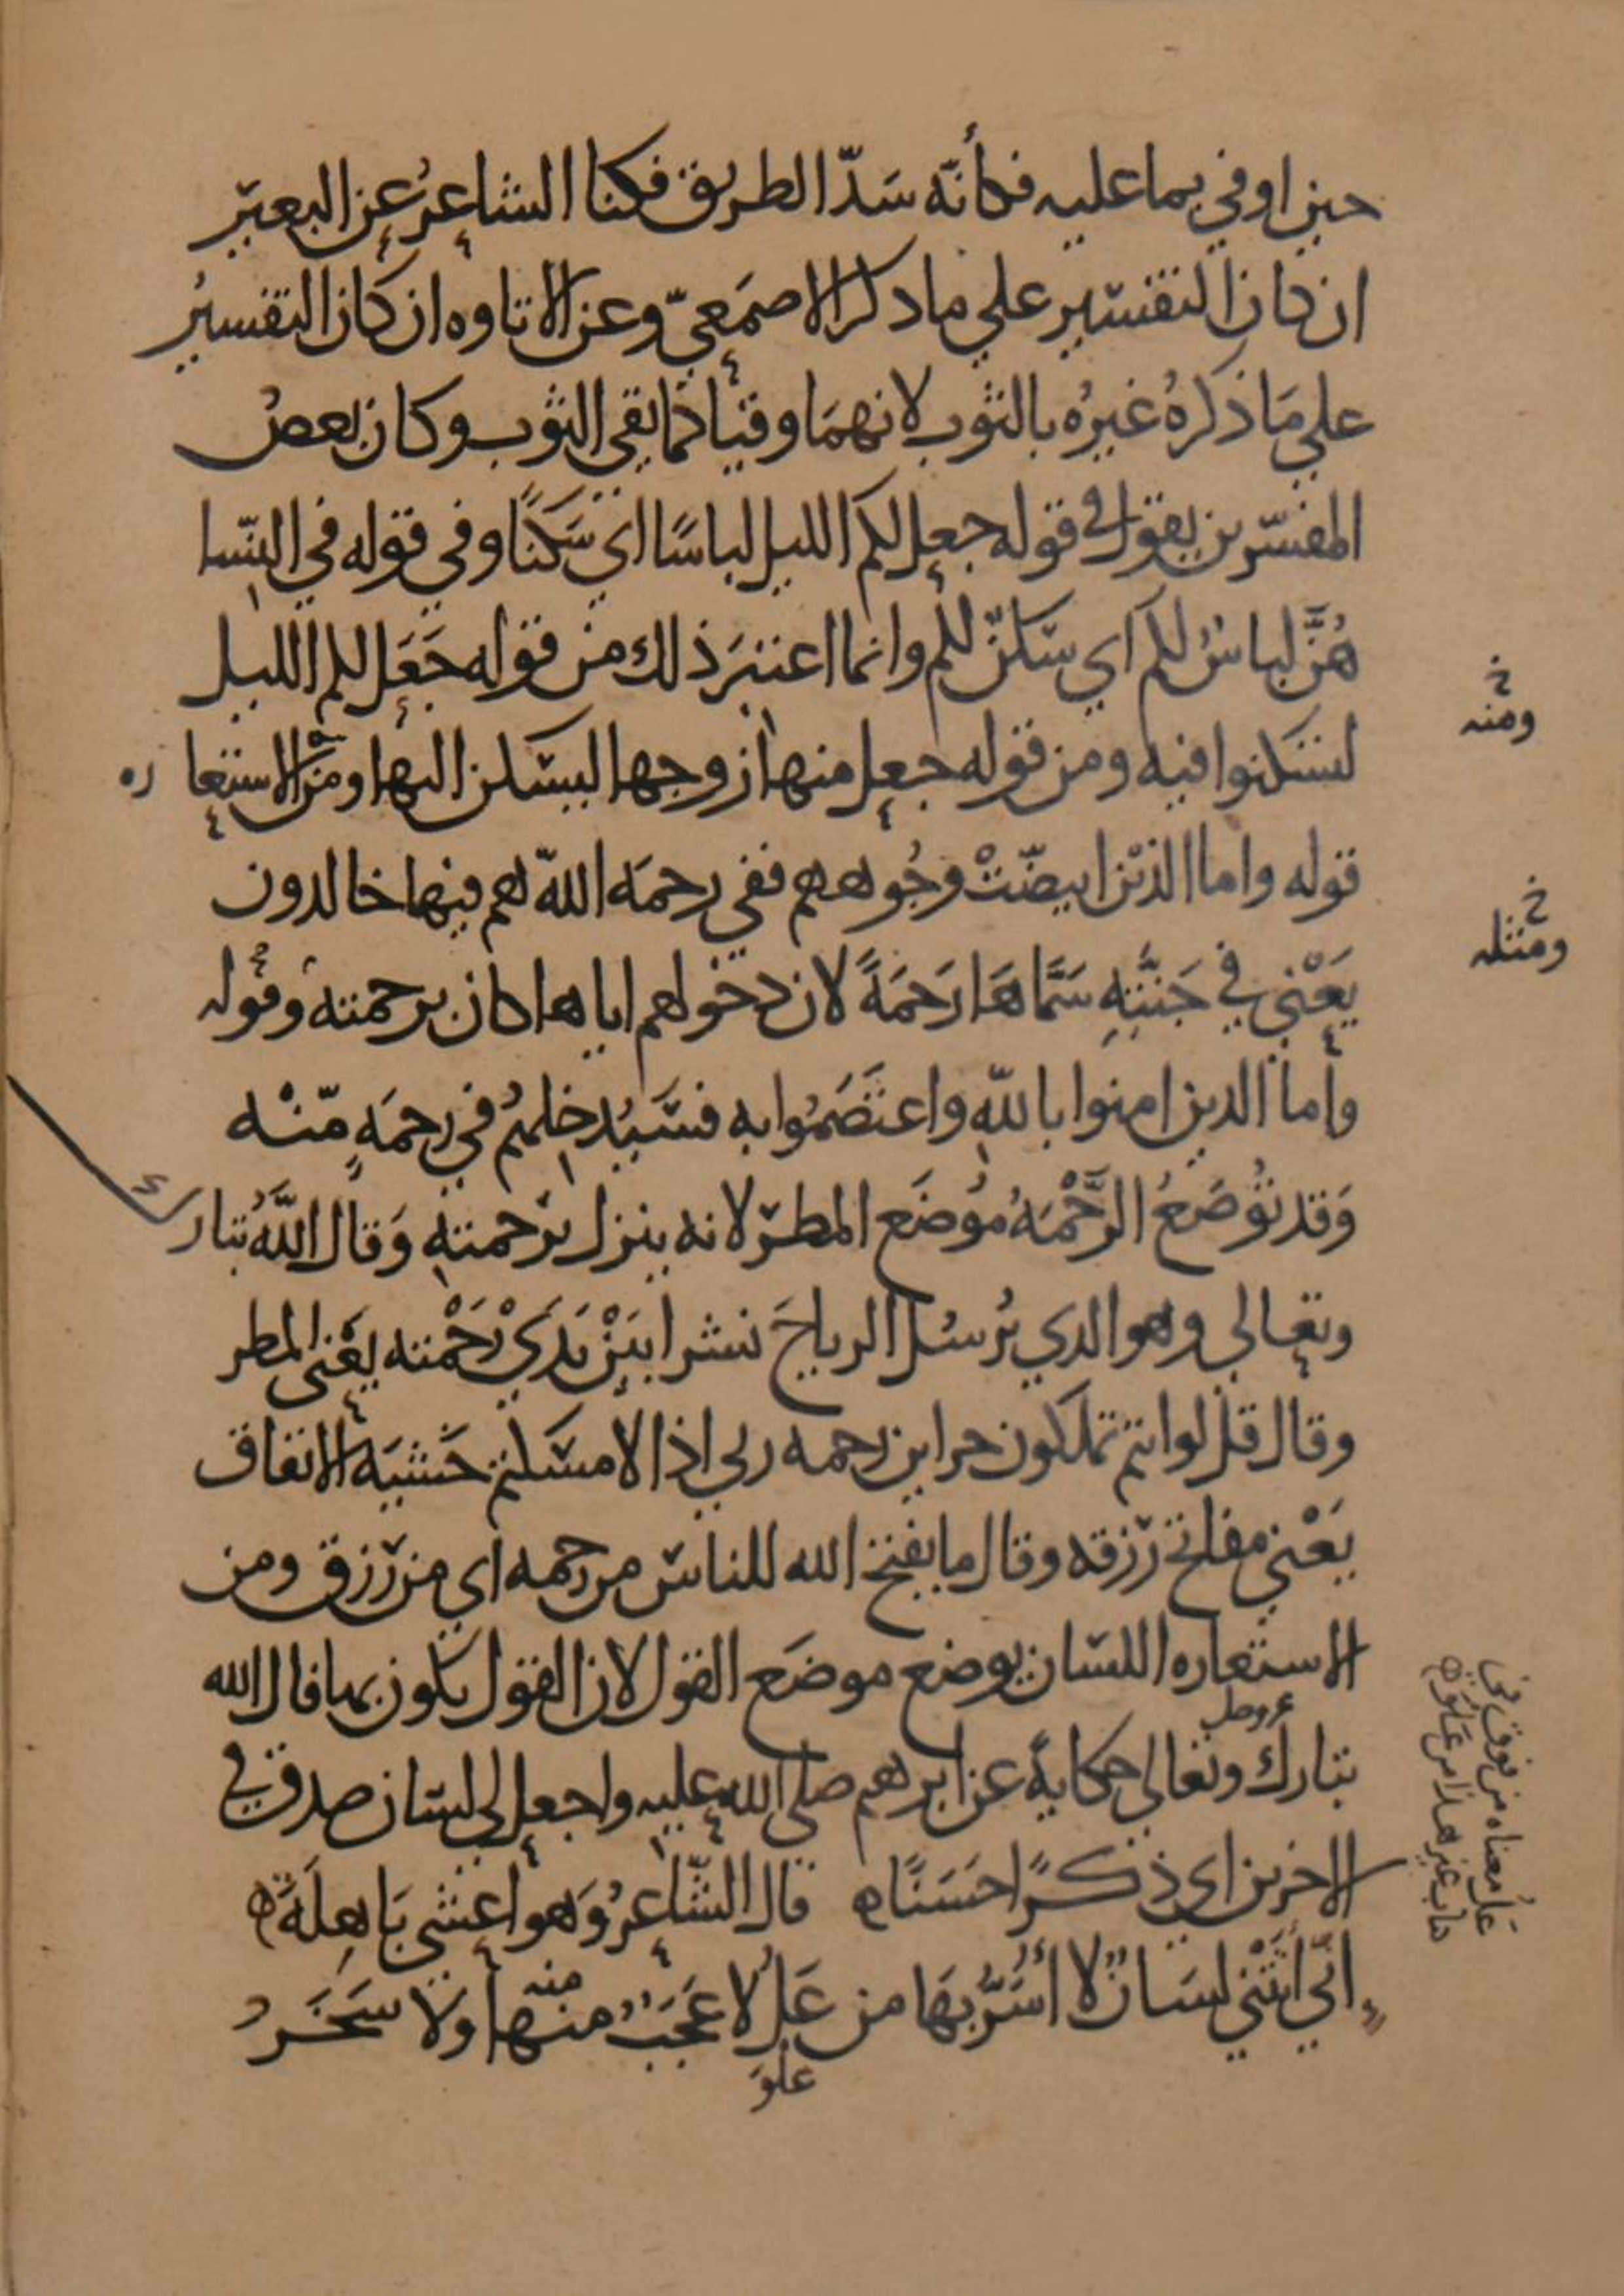 حين اوفي بما عليه فكأنّه سَدّ الطريق فكنا الشاعرُ عن البعير
ان كان التفسير علي ما ذكر الاصمَعيّ وعن الاتاوه ان كان التفسيرُ
علي مَا ذكرهُ غيرُه بالثوب لانهمَا وقيا كما يقي الثوب وكان بعضُ
المفسّرين يقول في قوله جعل لكم الليل لباسًا اي سَكنًا وفي قوله في النّسا
هُنَّ لباسٌ لكم اي سَكنٌ لكم وانما اعتبرَ ذلك من قوله جَعَل لكم الليل
لتسكنوا فيه ومن قوله جعل منها زوجها ليسكن اليها ومنَ الاستعاره
ومنه
قوله واما الذين ابيضّتْ وجُوههم ففي رحمَه اللّه هم فيها خالدون
يَعْني في جَنّتِهِ سَمَّاهَا رَحمَةً لان دخولهم اياها كان برحمته وقوله
ومثله
وأما الدين امنوا باللّهِ واعتَصَمُوا به فسَيُدخِلهُم في رحمَهٍ مّنْه
وَقد تُوضَعُ الرَّحْمَهُ مُوضَع المطر لانه ينزل برحمتهِ وَقال اللَّهُ تبارك
وتعالي وهو الدي يُرسُل الرياحَ نشرا بَيْن يَدَيْ رَحْمته يَعْني المطر
وقال قل لو انتم تملكون خزاين رحمه ربي اذا لامسَكتم خَشيَه الانفاق
يَعْني مفاتح رزقه وقال ما يفتح الله للناس من رحمه اي من رزق ومن
الاستعاره اللسان يوضع موضَع القول لان القول يكون بها قال الله
عز وجل
تبارك وتعالي حكايةً عن ابرهم صلي الله عليه واجعل لي لسان صدق في
الاخرين اي ذكرًا حَسَنًا قال الشّاعرُ وَهو اعشي بَاهِلَةَ
انّي أتَتْني لسَانٌ لا أُسَرُّ بهَا من عَلُ لا عَجَبٌ منها ولا سَخَرُ
منه
علوَ
عَلُ معناه من فوق